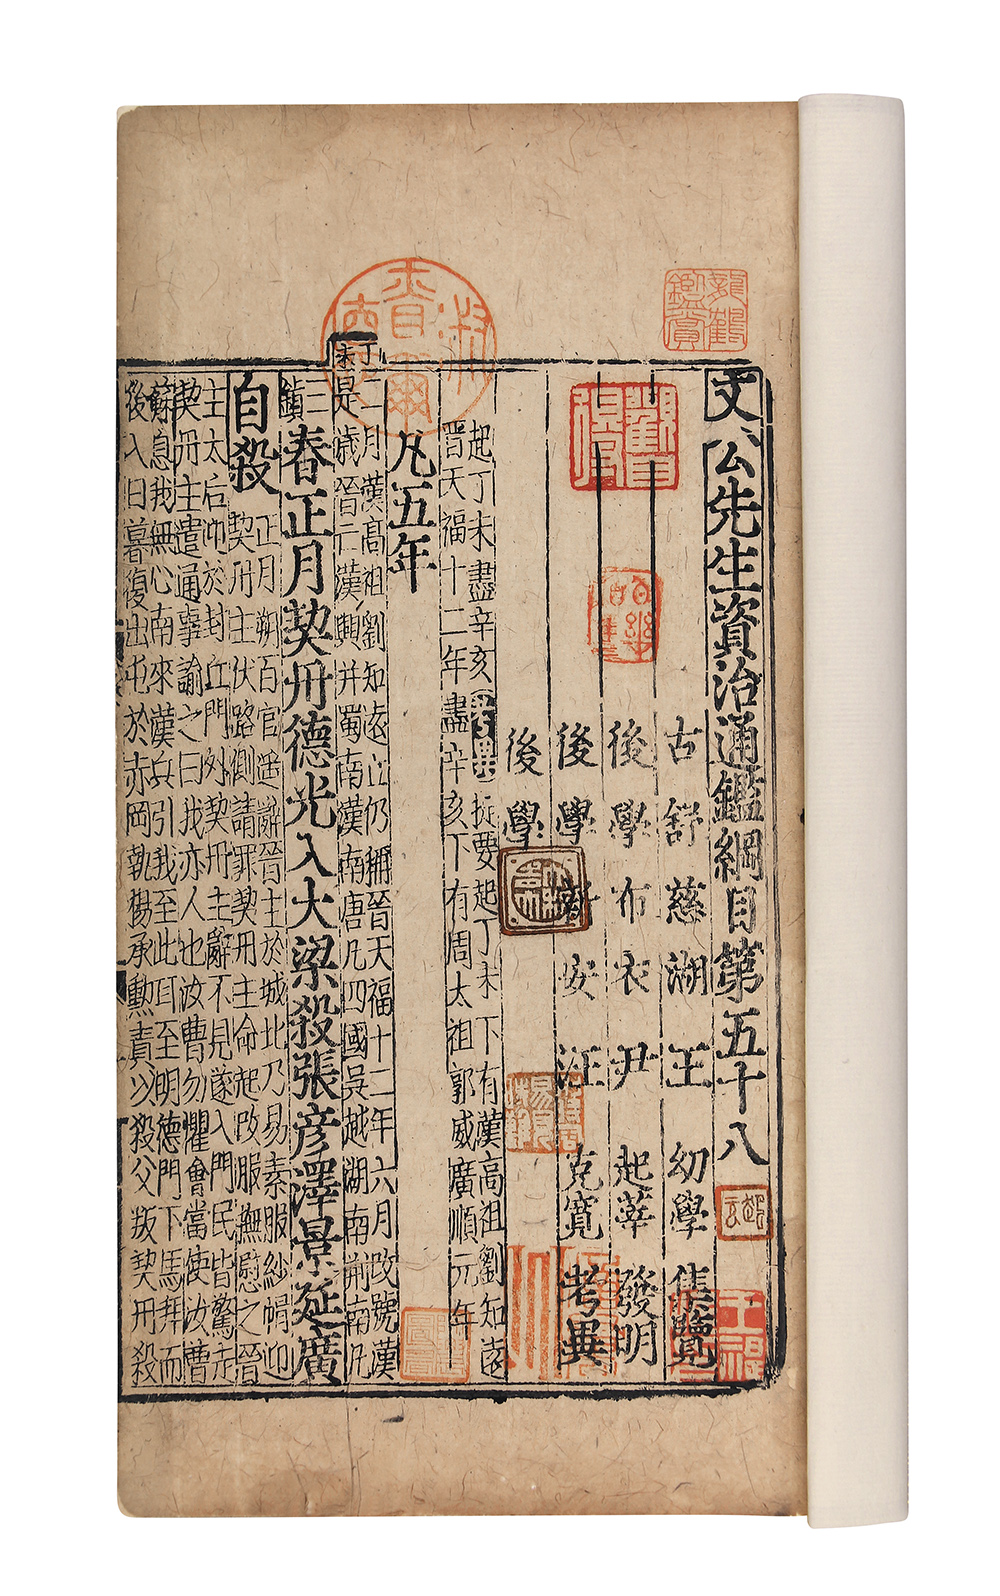 文公先生資治通鑑綱目第五十八
古舒慈湖王幼學集覽
後學布衣尹起莘發明
後學新安汪克寬考異
後學
起丁未盡辛亥考異提要起丁未下有漢高祖劉知遠
晉天福十二年盡辛亥下有周太祖郭威廣順元年
凡五年
丁未
二月漢高祖劉知遠立仍稱晉天福十二年六月改號漢
是歲晉亡漢興并蜀南漢南唐凡四國吳越湖南荆南凡
三鎮
春正月契丹德光入大梁殺張彥澤景延廣
自殺
正月朔百官遥辭晉主於城北乃易素服紗帽迎
契丹主伏路側請罪契丹主命起改服撫慰之晉
主太后迎於封丘門外契丹主辭不見遂入門民皆驚走
契丹主遣通事諭之曰我亦人也汝曹勿懼會當使汝曹
蘇息我無心南來漢兵引我至此耳至明德門下馬拜而
後入日暮復出屯於赤岡執楊承勲責以殺父叛契丹殺
龍鶴鑑賞